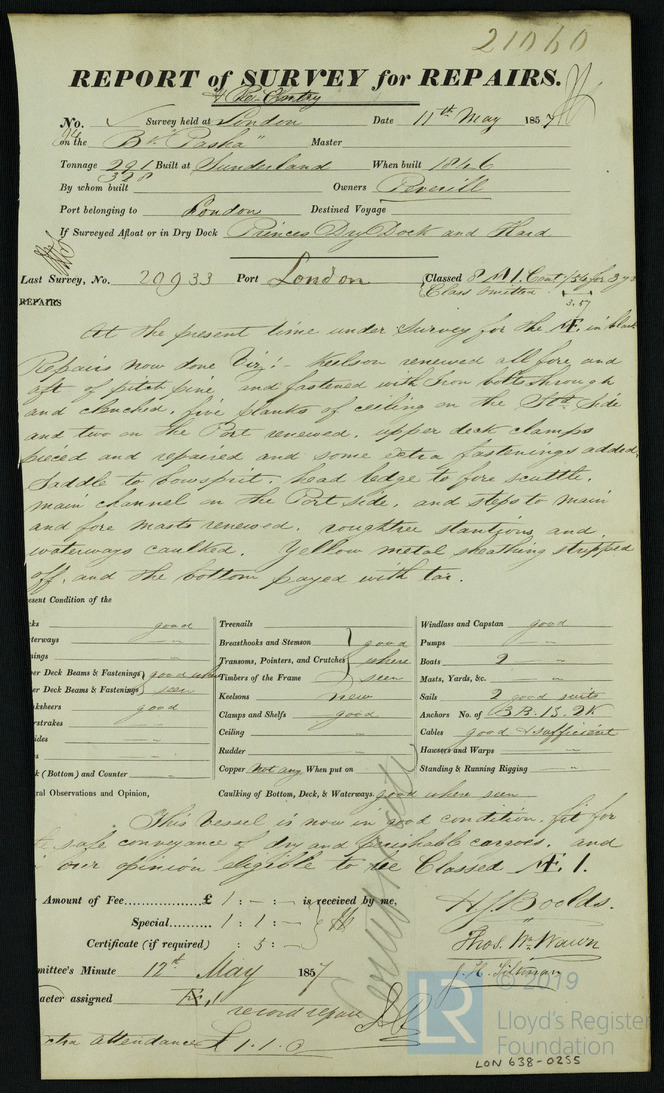 21060
REPORT of SURVEY for REPAIRS.
& Re-Entry
No. Survey held at London Date 11th May 1857
on the Bk "Pasha" Master
Tonnage 291 Built at Sunderland When built 1846
328
By whom built Owners Peverill
Port belonging to London Destined Voyage
If Surveyed Afloat or in Dry Dock Princes Dry Dock and Hard
Last Survey, No. 20933 Port London Classed 8 A 1. Cont /54 for 3 yrs
Class omitted
3.57
REPAIRS
At the present time under Survey for the Æ. in black
Repairs now done Viz:- Keelson renewed all fore and
aft of pitch pine and fastened with Iron bolts through
and clenched, five planks of ceiling on the Stb. Side
and two on the Port renewed. upper deck clamps
pieced and repaired and some extra fastenings added,
Saddle to bowsprit, head ledge to fore scuttle,
main channel on the Port side, and steps to main
and fore masts renewed, roughtree stantions and
waterways caulked. Yellow metal sheathing stripped
off, and the bottom payed with tar.
esent Condition of the
ks good Treenails Windlass and Capstan good
terways " Breasthooks and Stemson good Pumps "
nings " Transoms, Pointers, and Crutches where Boats 2 "
er Deck Beams & Fastenings good when Timbers of the Frame seen Masts, Yards, &c. "
er Deck Beams & Fastenings seen Keelsons new Sails 2 good suits
ksheers good Clamps and Shelfs good Anchors No. of 3 B. 1 S. 2 K
rstrakes " Ceiling " Cables good & sufficient
ides " Rudder " Hawsers and Warps "
k (Bottom) and Counter " Copper Not any When put on Standing & Running Rigging "
ral Observations and Opinion, Caulking of Bottom, Deck, & Waterways. good where seen
This Vessel is now in good condition, fit for
safe conveyance of dry and perishable cargoes, and
our opinion eligible to be Classed Æ. 1.
Amount of Fee £ 1 : - : - is received by me,
Special 1 : 1 : -
Certificate (if required) : 5 : -
H. J. Boolds.
Thos. Wm. Wawn
mmittee's Minute 12th May 1857
acter assigned Æ, 1
record repairs
tra attendance £ 1.1.0
© 2019
LR
Lloyd's Register
Foundation
LON 638-0255